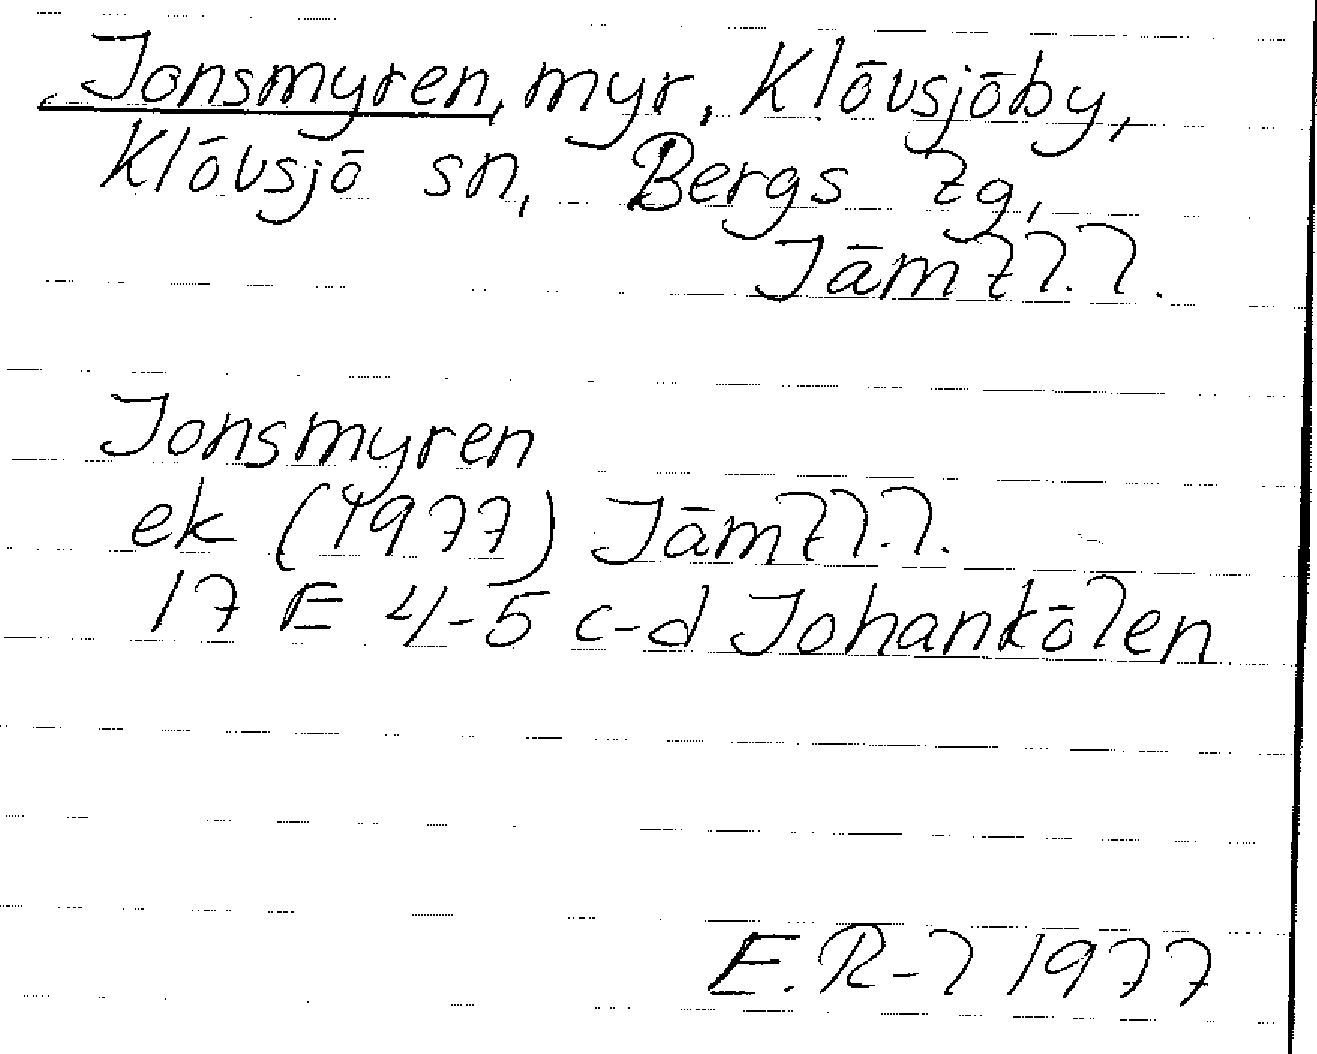 Jonsmyren, myr, Klövsjöby,
Klövsjö sn, Bergs tg,
Jämtl.l.
Jonsmyren
ek (1977) Jämtl.l.
17 E 4-5 c-d Johankölen
E.R-l 1977